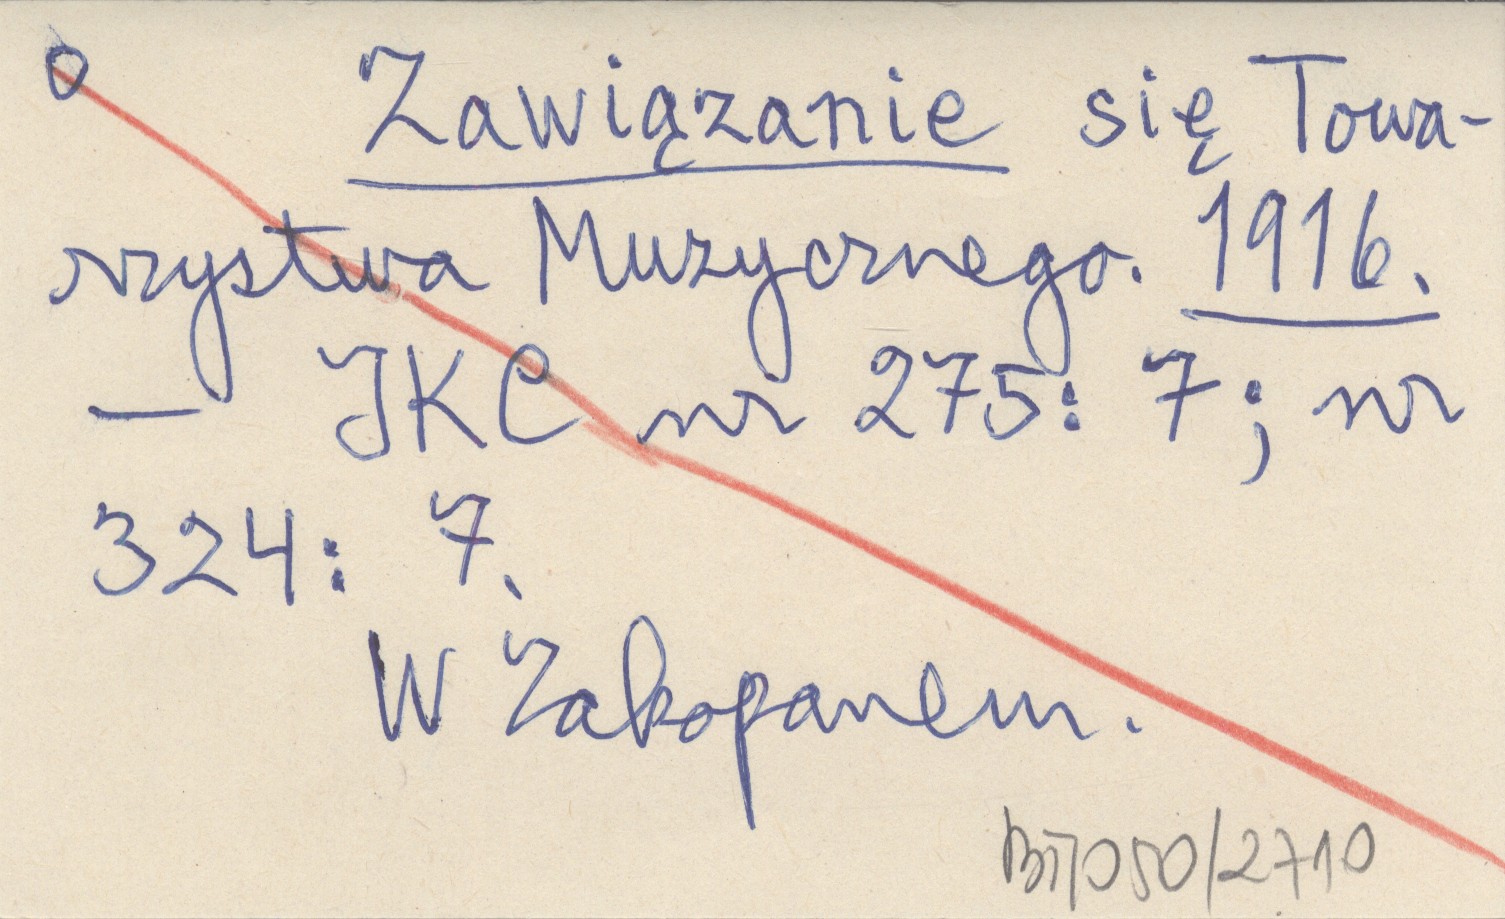 O
Zawiązanie się Towa-
rzystwa Muzycznego. 1916.
— IKC nr 275: 7; nr
324: 7.
W Zakopanem.
050/2710